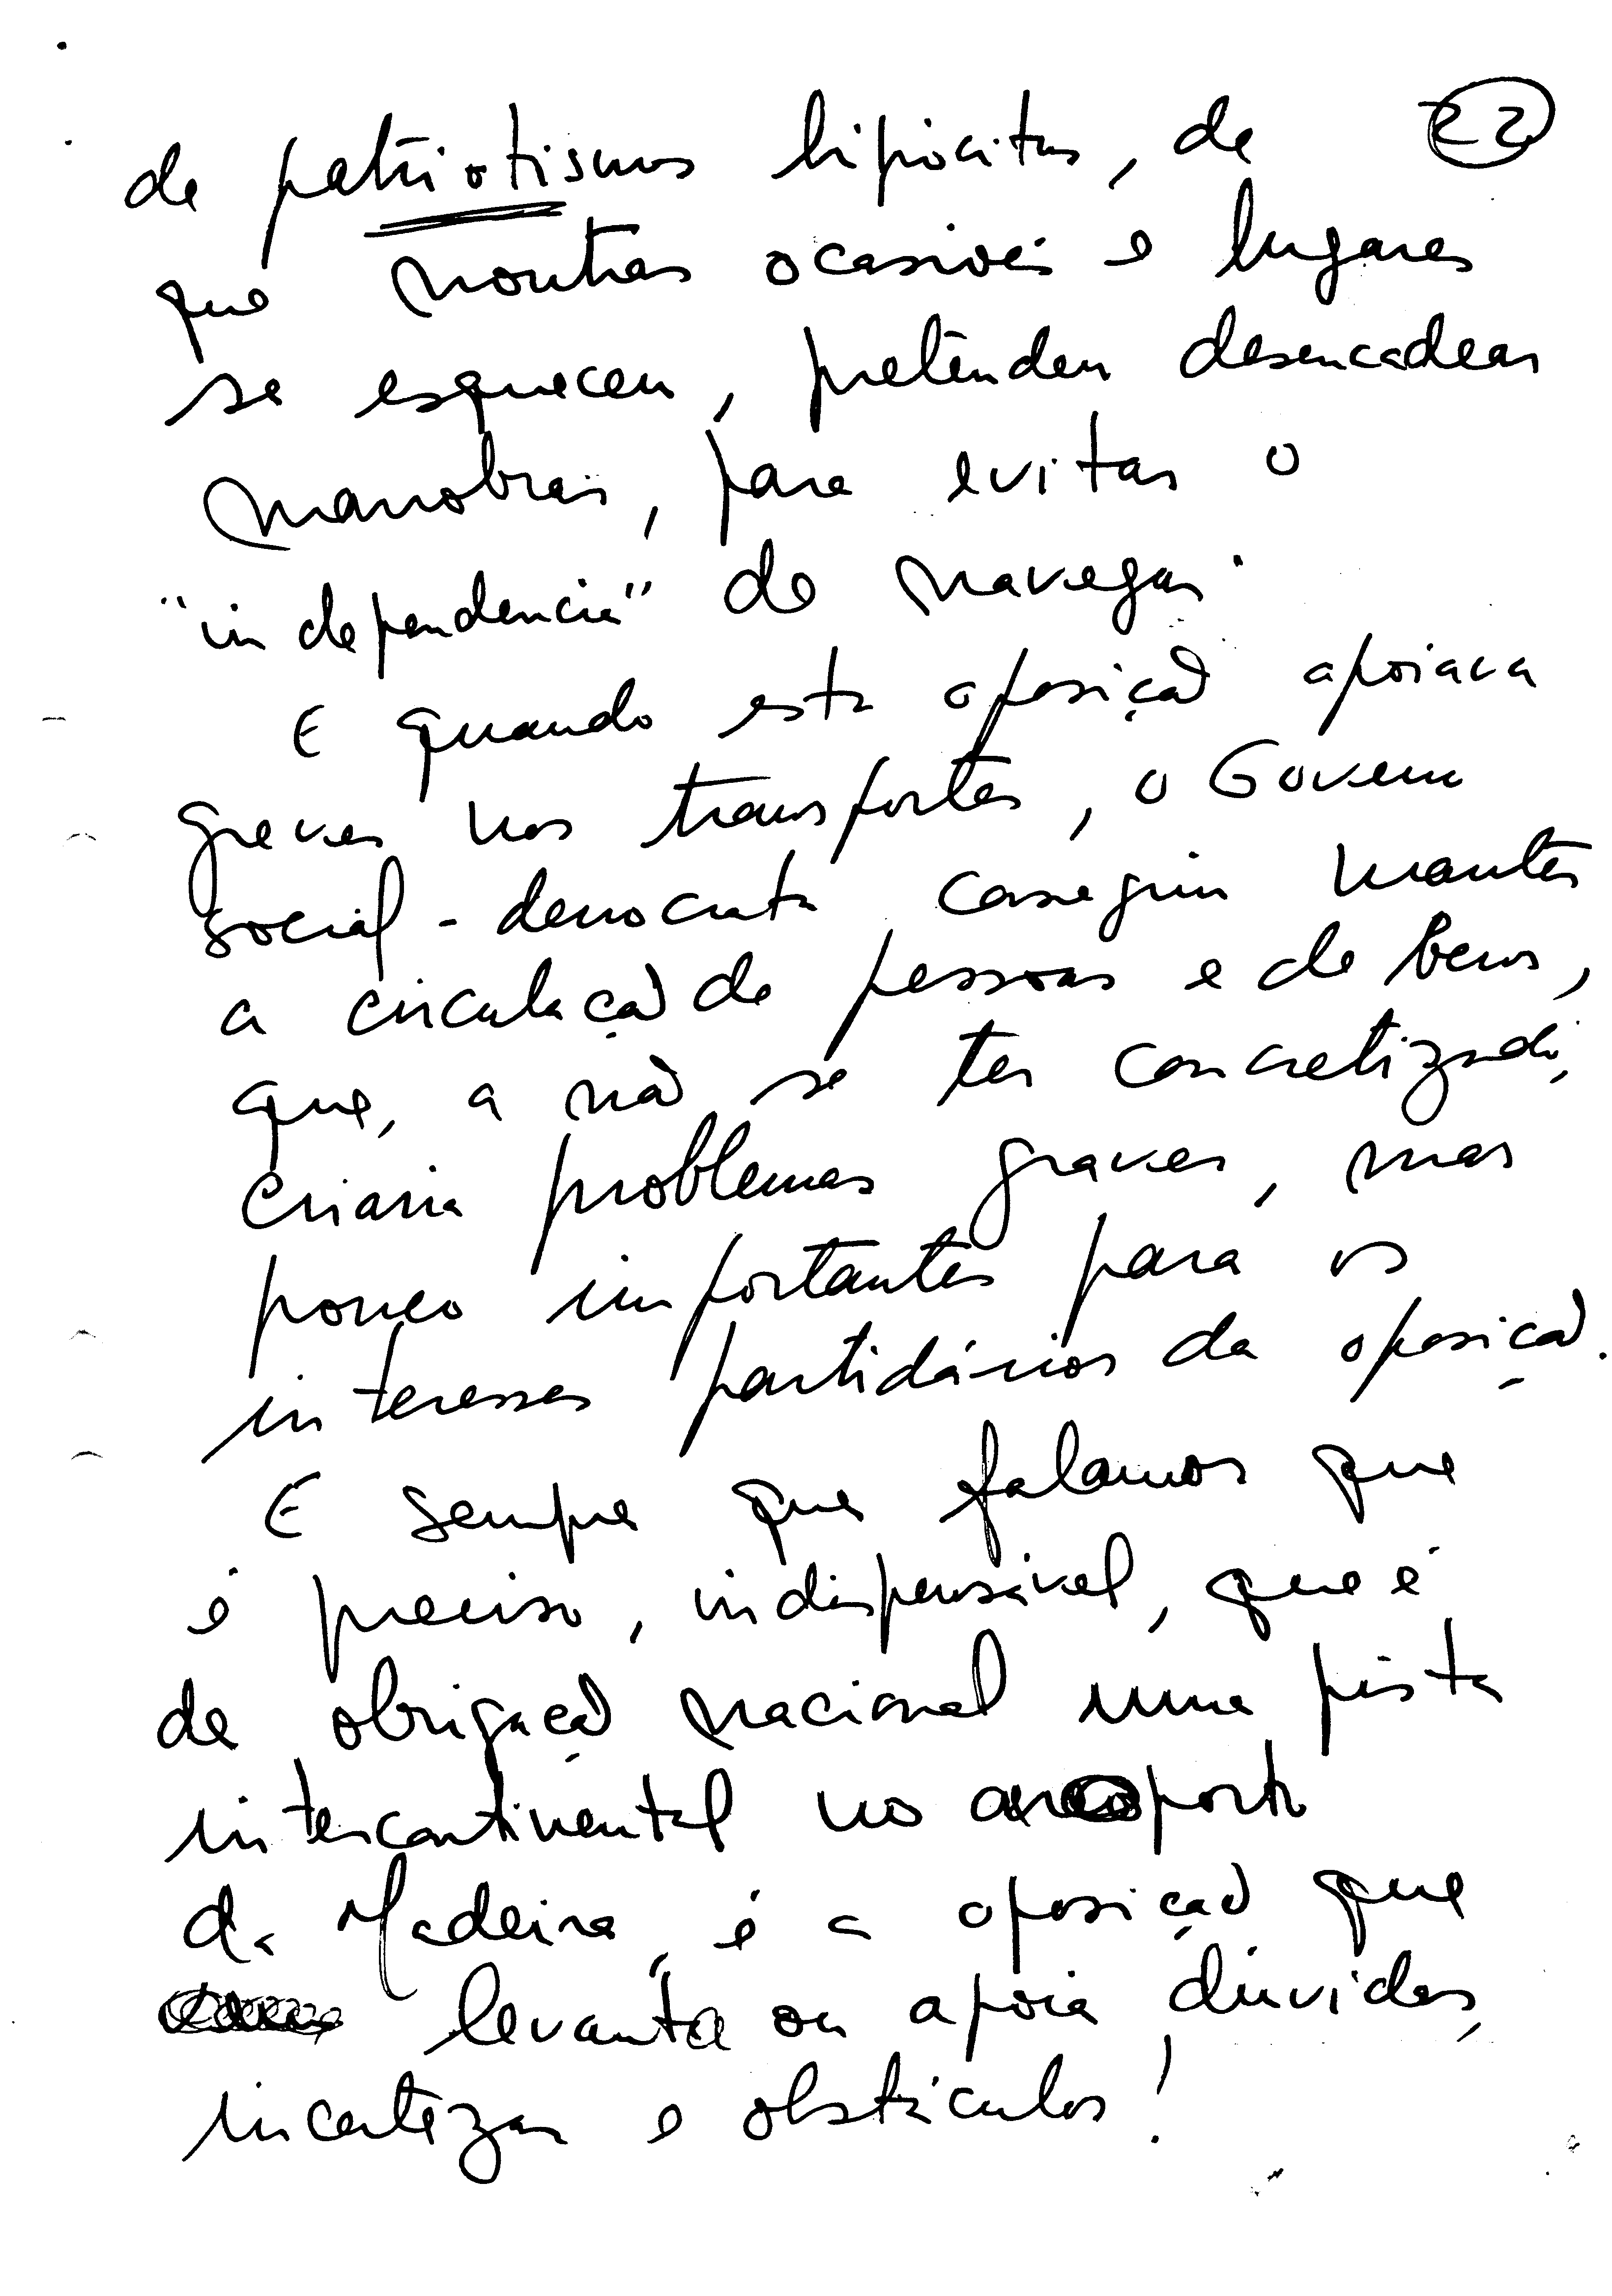 de patriotismos hipócritas, de 22
que noutras ocasiões e lugares
se esquecem, pretendem desencadear
manobras, para evitar o
"independência" de navegar.
E quando esta oposição apoiava
greves nos transportes, o Governo
social-democrata conseguiu manter
a circulação de pessoas e de bens,
que, a não se ter concretizado,
criaria problemas graves, mas
pouco importantes para os
interesses partidários da oposição.
E sempre que falamos que
é preciso, indispensável, que é
de obrigação nacional uma pista
intercontinental no aeroporto
da Madeira, é a oposição que
levanta ou apoia dúvidas,
incertezas e obstáculos!